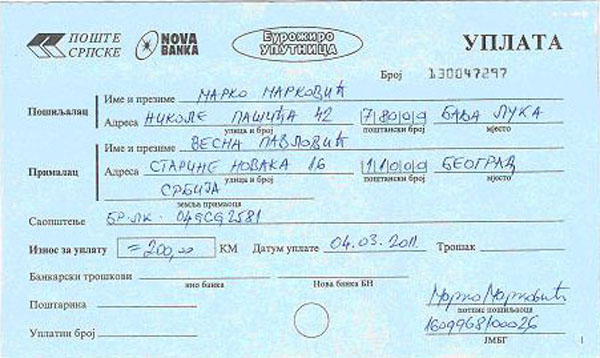 ПОШТЕ СРПСКЕ NOVA BANKA Еурожиро УПУТНИЦА УПЛАТА
Број 130047297
Пошиљалац Име и презиме МАРКО МАРКОВИЋ
Адреса НИКОЛЕ ПАШИЋА 42 78000 БАЊА ЛУКА
улица и број поштански број мјесто
Прималац Име и презиме ВЕСНА ПАВЛОВИЋ
Адреса СТАРИНЕ НОВАКА 16 11000 БЕОГРАД
улица и број поштански број мјесто
СРБИЈА
земља примаоца
Саопштење БР.ЛК. 04GCG2581
Износ за уплату =200,00 КМ Датум уплате 04.03.2011. Трошак
Банкарски трошкови
ино банка Нова банка БН
Поштарина Марко Марковић
потпис пошиљаоца
Уплатни број 1609968100026
ЈМБГ